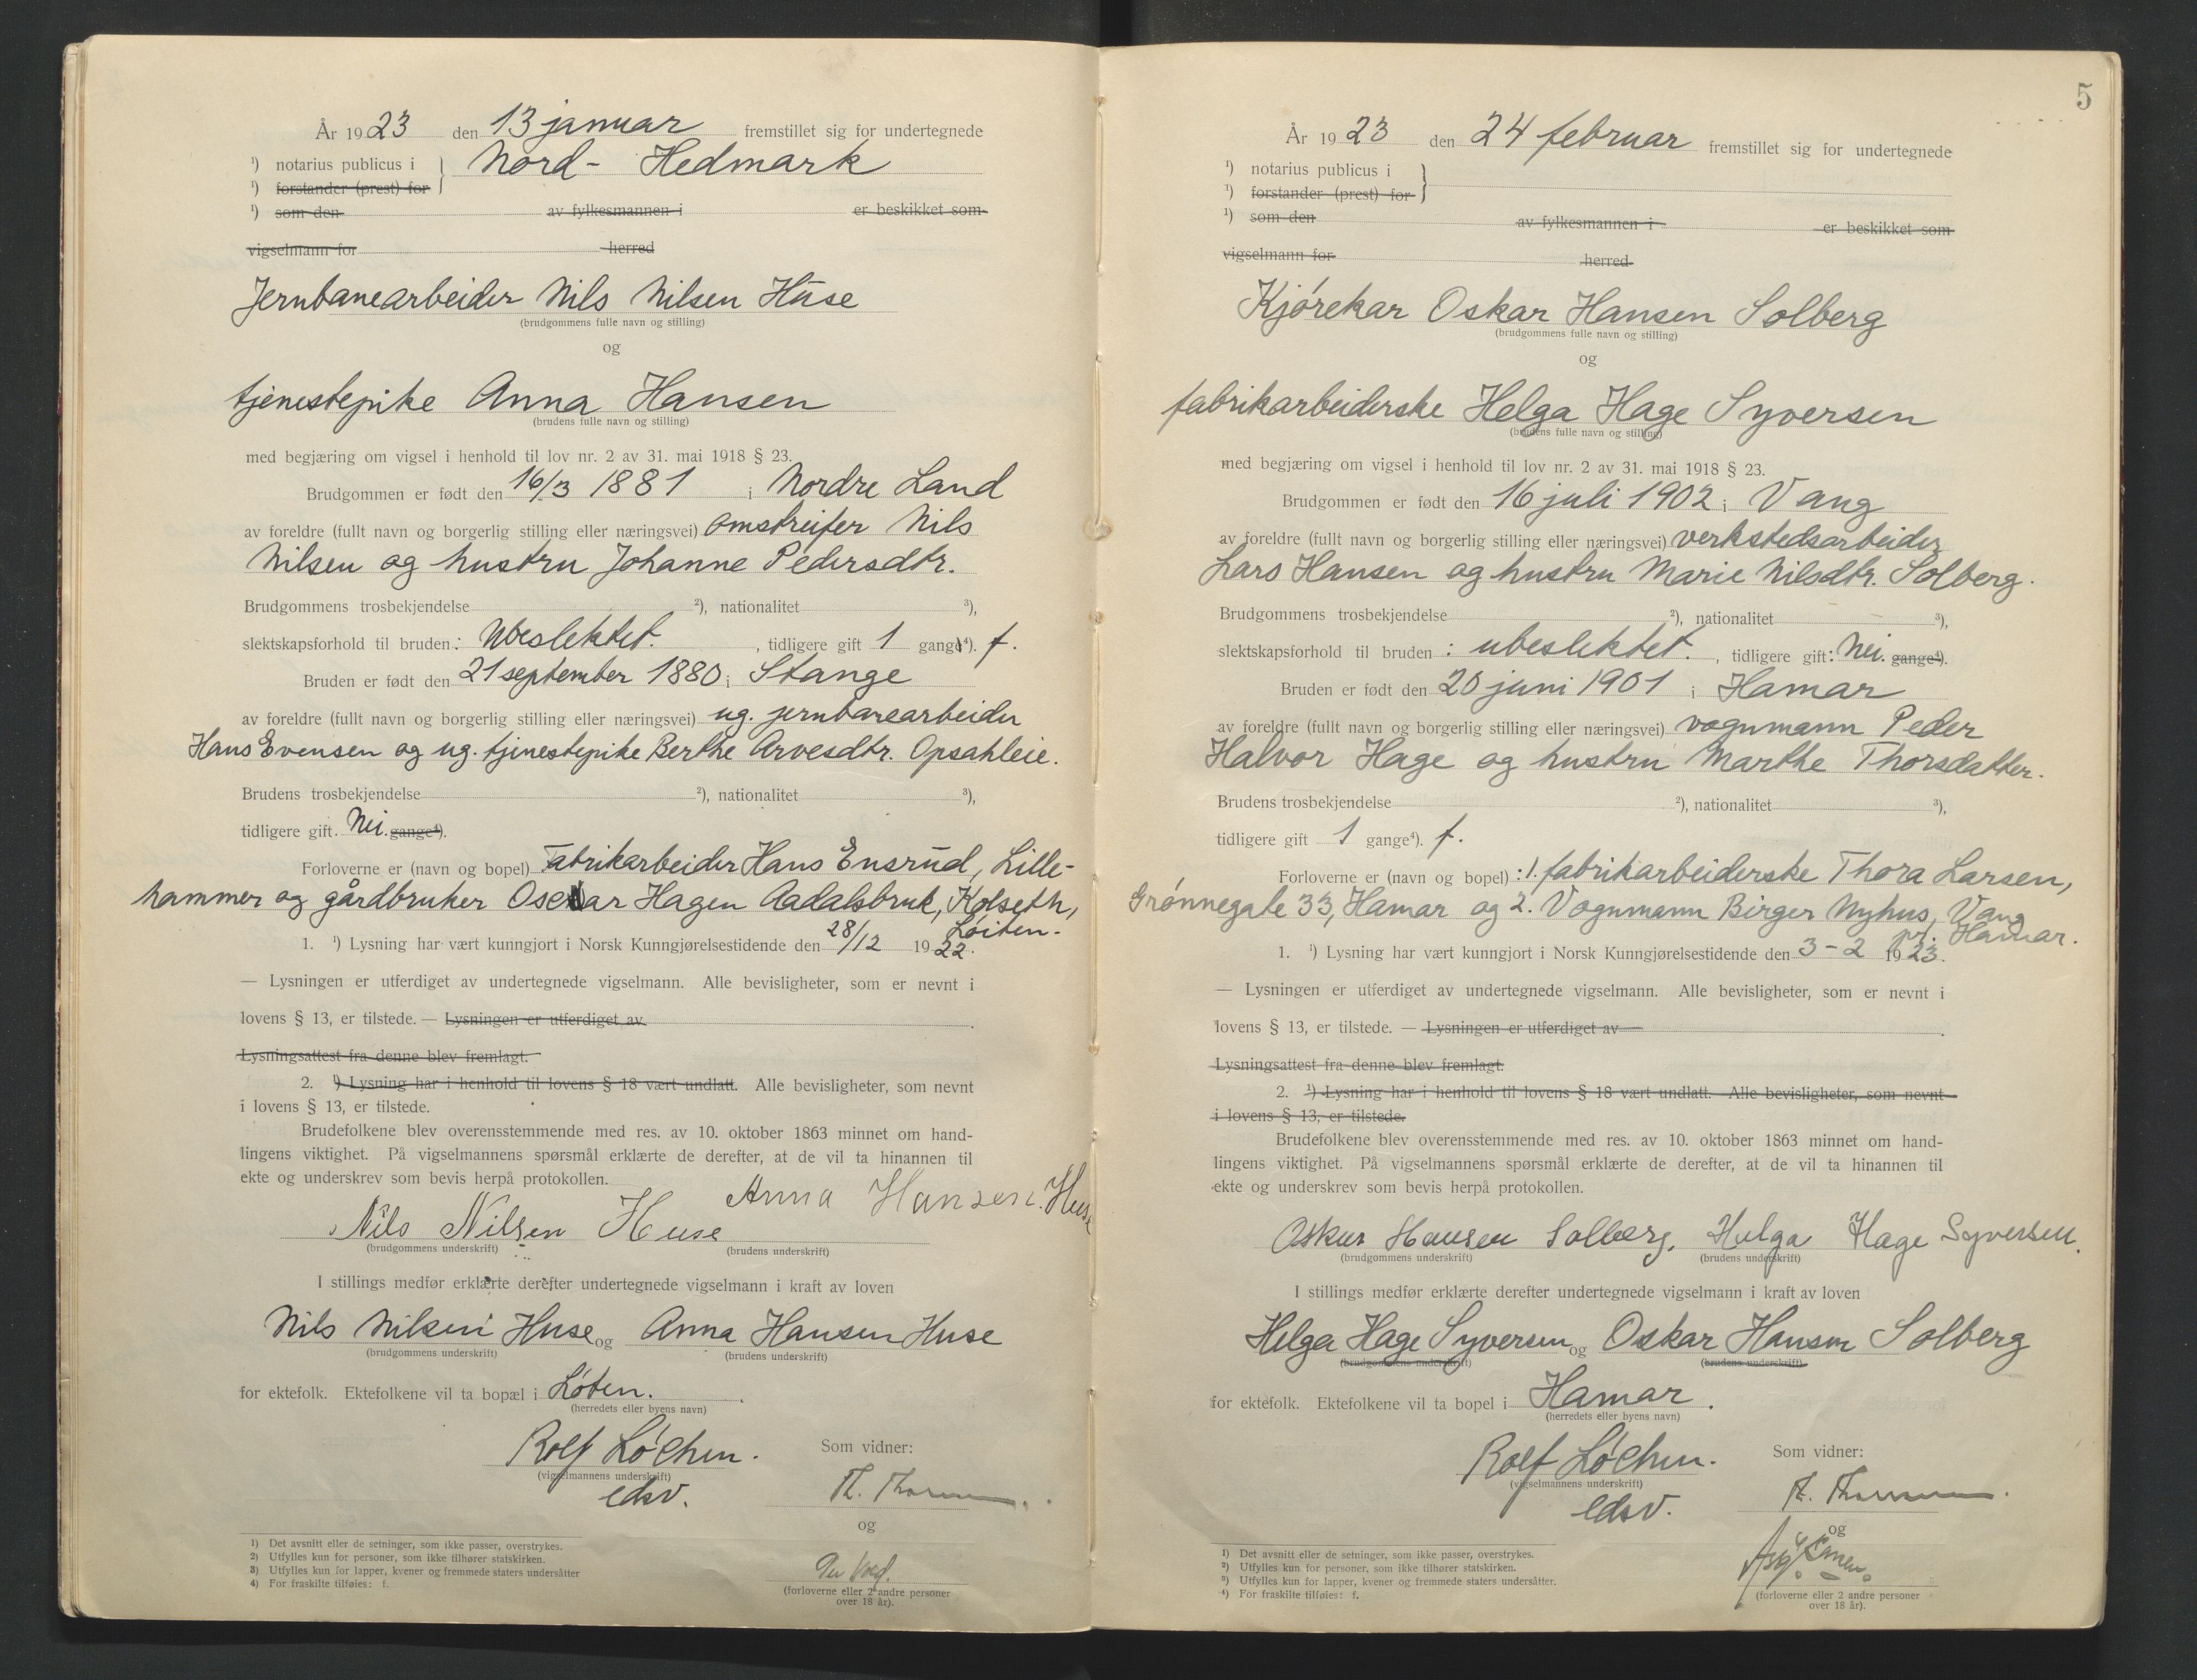 År 1923 den 13 januar fremstillet sig for undertegnede
¹) notarius publicus i } Nord- Hedmark
¹) forstander (prest) for
¹) som den av fylkesmannen i er beskikket som
vigselmann for herred
Jernbanearbeider Nils Nilsen Huse
(brudgommens fulle navn og stilling)
og
tjenestepike Anna Hansen
(brudens fulle navn og stilling)
med begjæring om vigsel i henhold til lov nr. 2 av 31. mai 1918 § 23.
Brudgommen er født den 16/3 1881 i Nordre Land
av foreldre (fullt navn og borgerlig stilling eller næringsvei) omstreifer Nils
Nilsen og hustru Johanne Pedersdtr.
Brudgommens trosbekjendelse ²), nationalitet ³),
slektskapsforhold til bruden: Ubeslektet. , tidligere gift 1 gange⁴). f.
Bruden er født den 21 september 1880 i Stange
av foreldre (fullt navn og borgerlig stilling eller næringsvei) ug. jernbanearbeider
Hans Evensen og ug. tjenestepike Berthe Arvesdtr. Opsahleie.
Brudens trosbekjendelse ²), nationalitet ³),
tidligere gift. Nei. gange⁴).
Forloverne er (navn og bopel) Fabrikarbeider Hans Ensrud, Lille-
hammer og gårdbruker Oscar Hagen Aadalsbruk, Kolseth,
Löiten.
1. ¹) Lysning har vært kunngjort i Norsk Kunngjørelsestidende den 28/12 1922.
— Lysningen er utferdiget av undertegnede vigselmann. Alle bevisligheter, som er nevnt i
lovens § 13, er tilstede. — Lysningen er utferdiget av .
Lysningsattest fra denne blev fremlagt.
2. ¹) Lysning har i henhold til lovens § 18 vært undlatt. Alle bevisligheter, som nevnt
i lovens § 13, er tilstede.
Brudefolkene blev overensstemmende med res. av 10. oktober 1863 minnet om hand-
lingens viktighet. På vigselmannens spørsmål erklærte de derefter, at de vil ta hinannen til
ekte og underskrev som bevis herpå protokollen.
Nils Nilsen Huse Anna Hansen. Huse
(brudgommens underskrift) (brudens underskrift)
I stillings medfør erklærte derefter undertegnede vigselmann i kraft av loven
Nils Nilsen Huse og Anna Hansen Huse
(brudgommens underskrift) (brudens underskrift)
for ektefolk. Ektefolkene vil ta bopæl i Løten.
(herredets eller byens navn)
Rolf Löchen. Som vidner:
(vigselmannens underskrift)
edsv.
og
(forloverne eller 2 andre personer
over 18 år).
1) Det avsnitt eller de setninger, som ikke passer, overstrykes.
2) Utfylles kun for personer, som ikke tilhører statskirken.
3) Utfylles kun for lapper, kvener og fremmede staters undersåtter
4) For fraskilte tilføies: f.
5
År 1923 den 24 februar fremstillet sig for undertegnede
¹) notarius publicus i }
¹) forstander (prest) for
¹) som den av fylkesmannen i er beskikket som
vigselmann for herred
Kjørekar Oskar Hansen Solberg
(brudgommens fulle navn og stilling)
og
fabrikarbeiderske Helga Hage Syversen
(brudens fulle navn og stilling)
med begjæring om vigsel i henhold til lov nr. 2 av 31. mai 1918 § 23.
Brudgommen er født den 16 juli 1902 i Vang
av foreldre (fullt navn og borgerlig stilling eller næringsvei) verkstedsarbeider
Lars Hansen og hustru Marie Nilsdtr. Solberg.
Brudgommens trosbekjendelse ²), nationalitet ³),
slektskapsforhold til bruden : ubeslektet. , tidligere gift: Nei. gange⁴).
Bruden er født den 20 juni 1901 i Hamar
av foreldre (fullt navn og borgerlig stilling eller næringsvei) vognmann Peder
Halvor Hage og hustru Marthe Thorsdatter.
Brudens trosbekjendelse ²), nationalitet ³),
tidligere gift 1 gange⁴). f.
Forloverne er (navn og bopel) : 1. fabrikarbeiderske Thora Larsen,
Grønnegate 33, Hamar og 2. Vognmann Birger Nyhus, Vang
pr. Hamar.
1. ¹) Lysning har vært kunngjort i Norsk Kunngjørelsestidende den 3-2 1923.
— Lysningen er utferdiget av undertegnede vigselmann. Alle bevisligheter, som er nevnt i
lovens § 13, er tilstede. — Lysningen er utferdiget av .
Lysningsattest fra denne blev fremlagt.
2. ¹) Lysning har i henhold til lovens § 18 vært undlatt. Alle bevisligheter, som nevnt
i lovens § 13, er tilstede.
Brudefolkene blev overensstemmende med res. av 10. oktober 1863 minnet om hand-
lingens viktighet. På vigselmannens spørsmål erklærte de derefter, at de vil ta hinannen til
ekte og underskrev som bevis herpå protokollen.
Oskar Hansen Solberg, Helga Hage Syversen.
(brudgommens underskrift) (brudens underskrift)
I stillings medfør erklærte derefter undertegnede vigselmann i kraft av loven
Helga Hage Syversen og Oskar Hansen Solberg
(brudgommens underskrift) (brudens underskrift)
for ektefolk. Ektefolkene vil ta bopel i Hamar.
(herredets eller byens navn)
Rolf Löchen. Som vidner:
(vigselmannens underskrift)
edsv.
og
(forloverne eller 2 andre personer
over 18 år).
¹) Det avsnitt eller de setninger, som ikke passer, overstrykes.
²) Utfylles kun for personer, som ikke tilhører statskirken.
³) Utfylles kun for lapper, kvener og fremmede staters undersåtter.
⁴) For fraskilte tilføies: f.